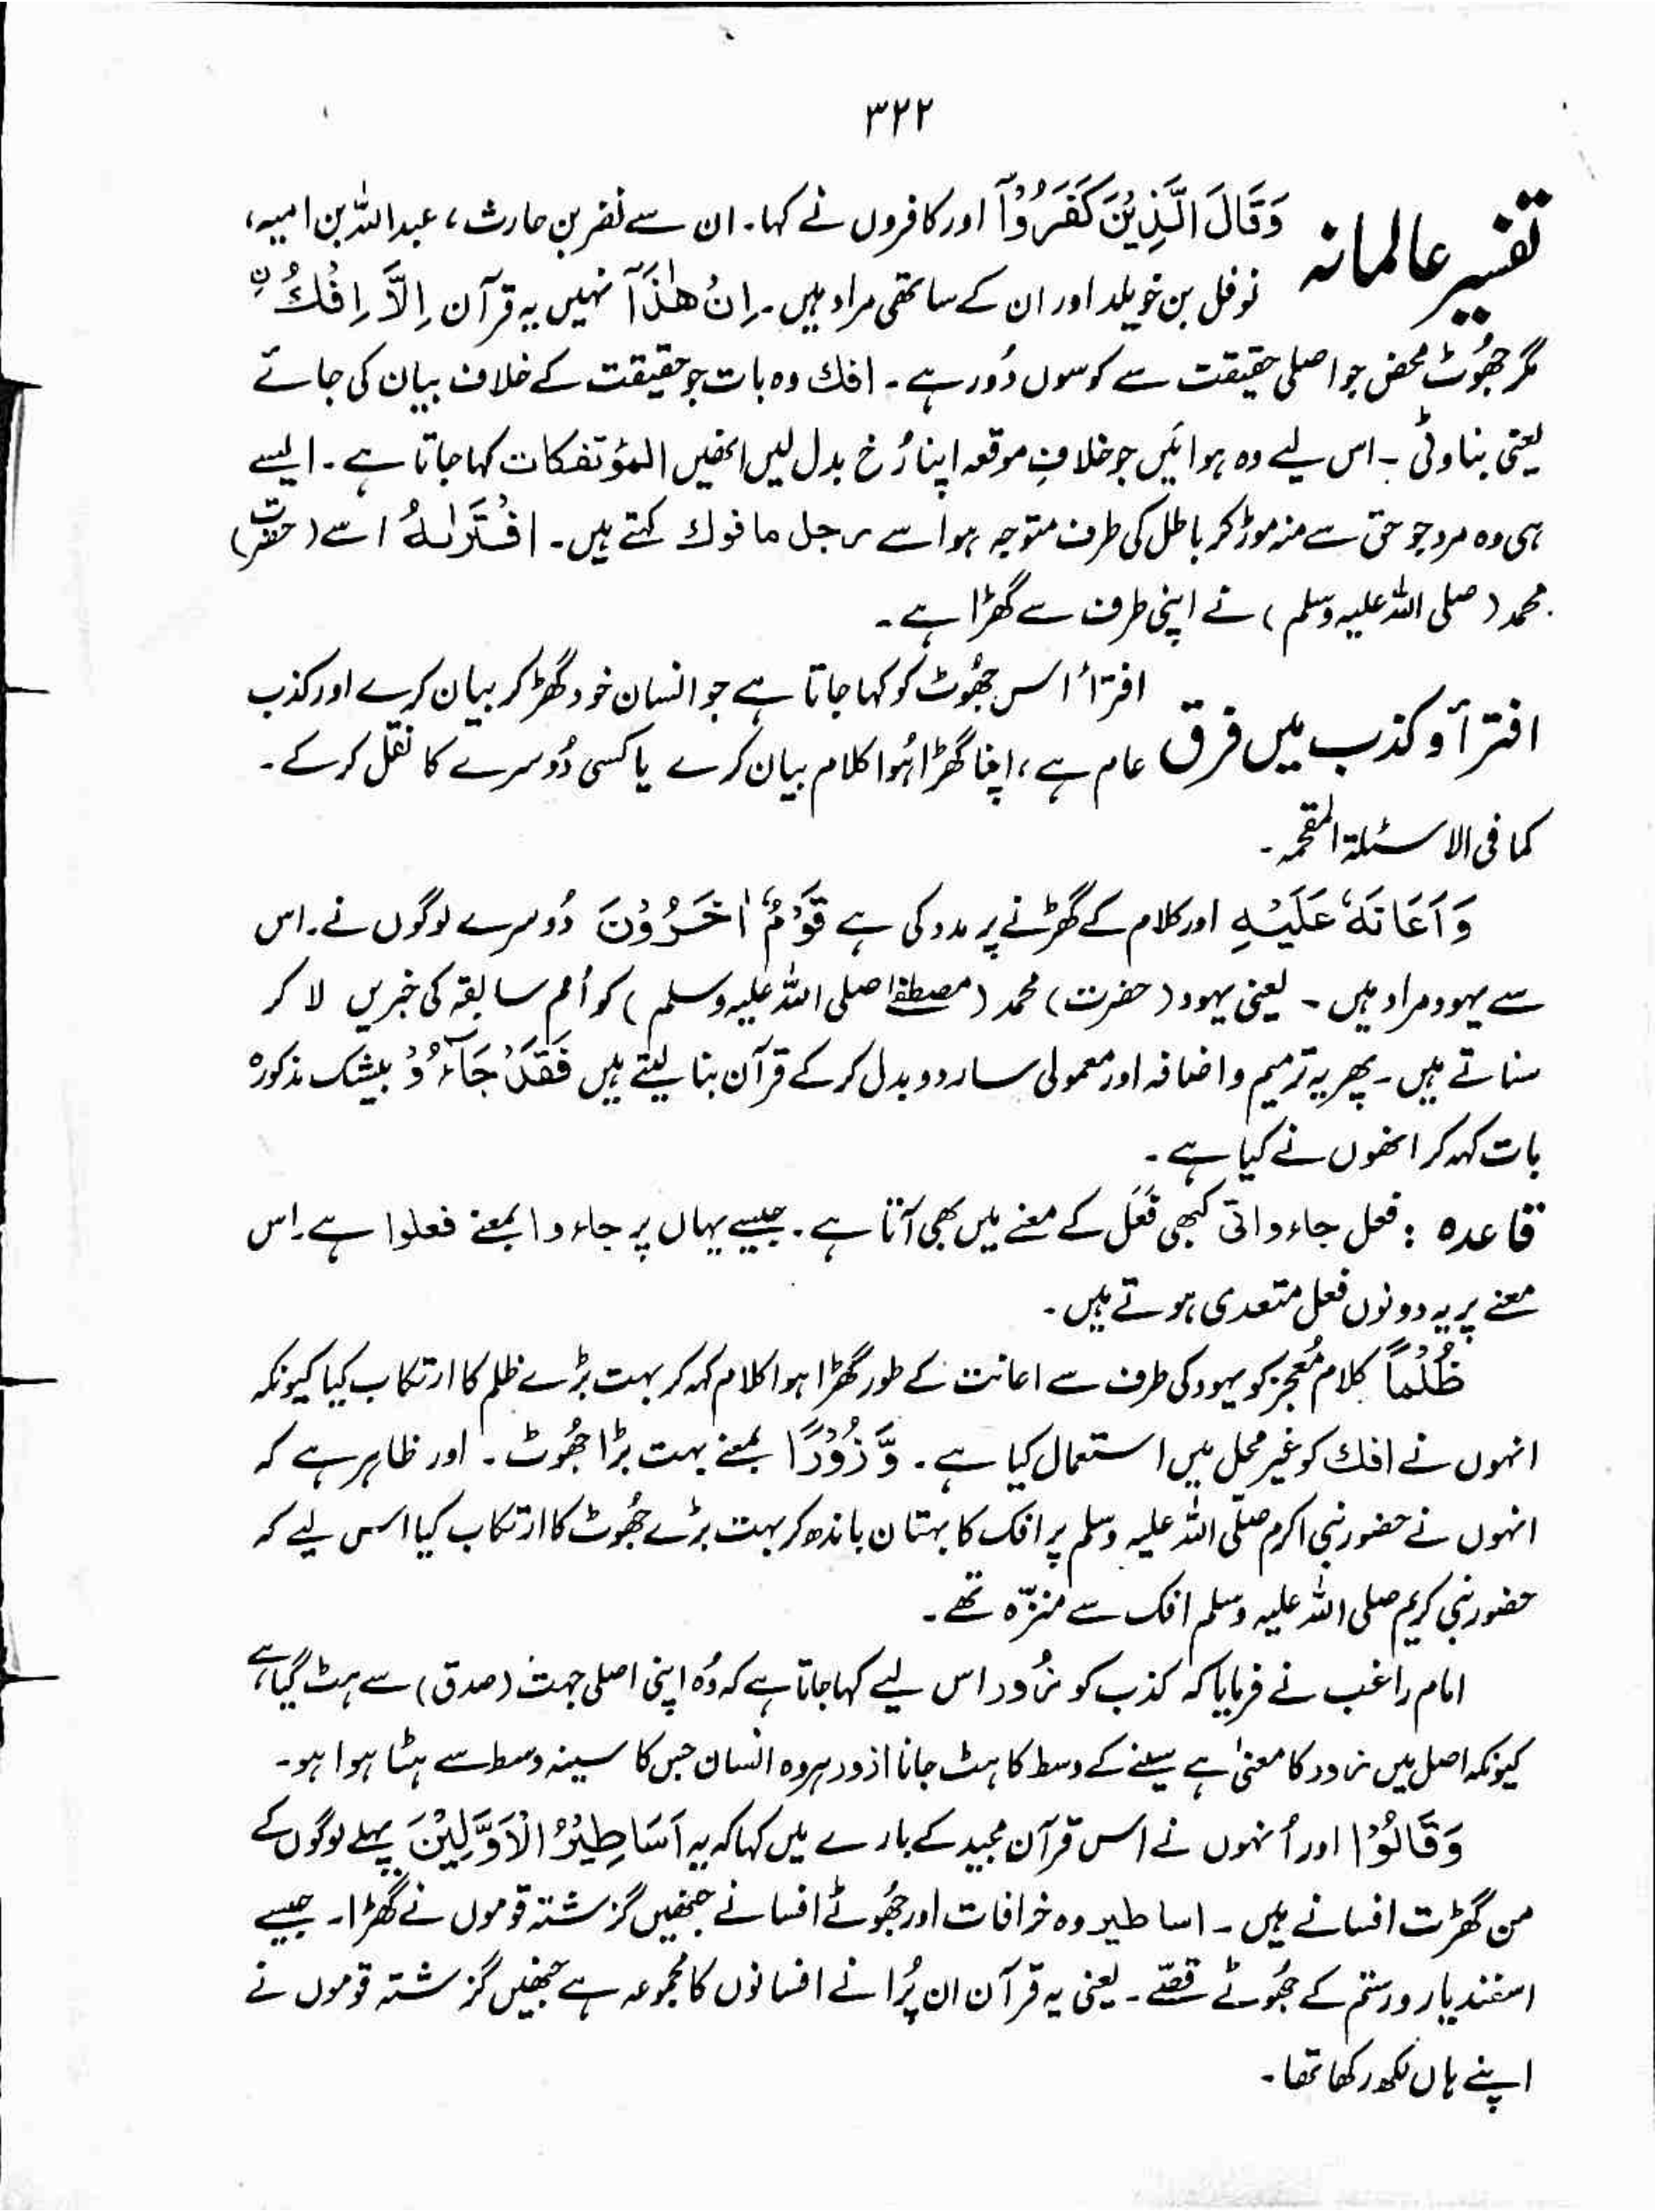 ۳۲۲
تفسیر عالمانہ وَقَالَ الَّذِیْنَ کَفَرُوْآ اور کافروں نے کہا۔ ان سے نضر بن حارث، عبد اللہ بن امیہ،
نوفل بن خویلد اور ان کے ساتھی مراد ہیں۔ اِنْ ھٰذَآ نہیں یہ قرآن اِلَّا اِفْكُ نِ
مگر جھُوٹ محض جو اصلی حقیقت سے کوسوں دُور ہے۔ افك وہ بات جو حقیقت کے خلاف بیان کی جائے
یعنی بناوٹی۔ اس لیے وہ ہوائیں جو خلافِ موقعہ اپنا رُخ بدل لیں انھیں المؤتفکات کہا جاتا ہے۔ ایسے
ہی وہ مرد جو حق سے منہ موڑ کر باطل کی طرف متوجہ ہوا سے رجل مافوك کہتے ہیں۔ افْتَرٰىهُ اسے (حضرت)
محمد (صلی اللہ علیہ وسلم) نے اپنی طرف سے گھڑا ہے۔
افترأ و کذب میں فرق افترأ اس جھُوٹ کو کہا جاتا ہے جو انسان خود گھڑ کر بیان کرے اور کذب
عام ہے، اپنا گھڑا ہُوا کلام بیان کرے یا کسی دُوسرے کا نقل کرکے۔
کما فی الاسئلۃ المقحمہ۔
وَاَعَانَهٗ عَلَیْهِ اور کلام کے گھڑنے پر مدد کی ہے قَوْمٌ اٰخَرُوْنَ دُوسرے لوگوں نے۔ اس
سے یہود مراد ہیں۔ یعنی یہود (حضرت) محمد (مصطفےٰ صلی اللہ علیہ وسلم) کو اُمم سابقہ کی خبریں لا کر
سناتے ہیں۔ پھر یہ ترمیم و اضافہ اور معمولی سا ردوبدل کرکے قرآن بنا لیتے ہیں فَقَدْ جَآءُوْ بیشک مذکورہ
بات کہہ کر انھوں نے کیا ہے۔
قاعدہ : فعل جاء و اتی کبھی فَعَل کے معنے میں بھی آتا ہے۔ جیسے یہاں پر جاءوا بمعنے فعلوا ہے۔ اس
معنے پر یہ دونوں فعل متعدی ہوتے ہیں۔
ظُلْمًا کلام مُعجز کو یہود کی طرف سے اعانت کے طور گھڑا ہوا کلام کہہ کر بہت بڑے ظلم کا ارتکاب کیا کیونکہ
انہوں نے افك کو غیر محل میں استعمال کیا ہے۔ وَّ زُوْرًا بمعنے بہت بڑا جھُوٹ۔ اور ظاہر ہے کہ
انہوں نے حضور نبی اکرم صلّی اللہ علیہ وسلم پر افک کا بہتان باندھ کر بہت بڑے جھُوٹ کا ارتکاب کیا اس لیے کہ
حضور نبی کریم صلی اللہ علیہ وسلم افک سے منزّہ تھے۔
امام راغب نے فرمایا کہ کذب کو زُور اس لیے کہا جاتا ہے کہ وُہ اپنی اصلی جہت (صدق) سے ہٹ گیا ہے،
کیونکہ اصل میں زور کا معنیٰ ہے سینے کے وسط کا ہٹ جانا ازور ہر وہ انسان جس کا سینہ وسط سے ہٹا ہوا ہو۔
وَ قَالُوْا اور اُنہوں نے اس قرآن مجید کے بارے میں کہا کہ یہ اَسَاطِیْرُ الْاَوَّلِیْنَ پہلے لوگوں کے
من گھڑت افسانے ہیں۔ اساطیر وہ خرافات اور جھُوٹے افسانے جنھیں گزشتہ قوموں نے گھڑا۔ جیسے
اسفندیار و رستم کے جھُوٹے قصّے۔ یعنی یہ قرآن ان پُرانے افسانوں کا مجموعہ ہے جنھیں گزشتہ قوموں نے
اپنے ہاں لکھ رکھا تھا۔